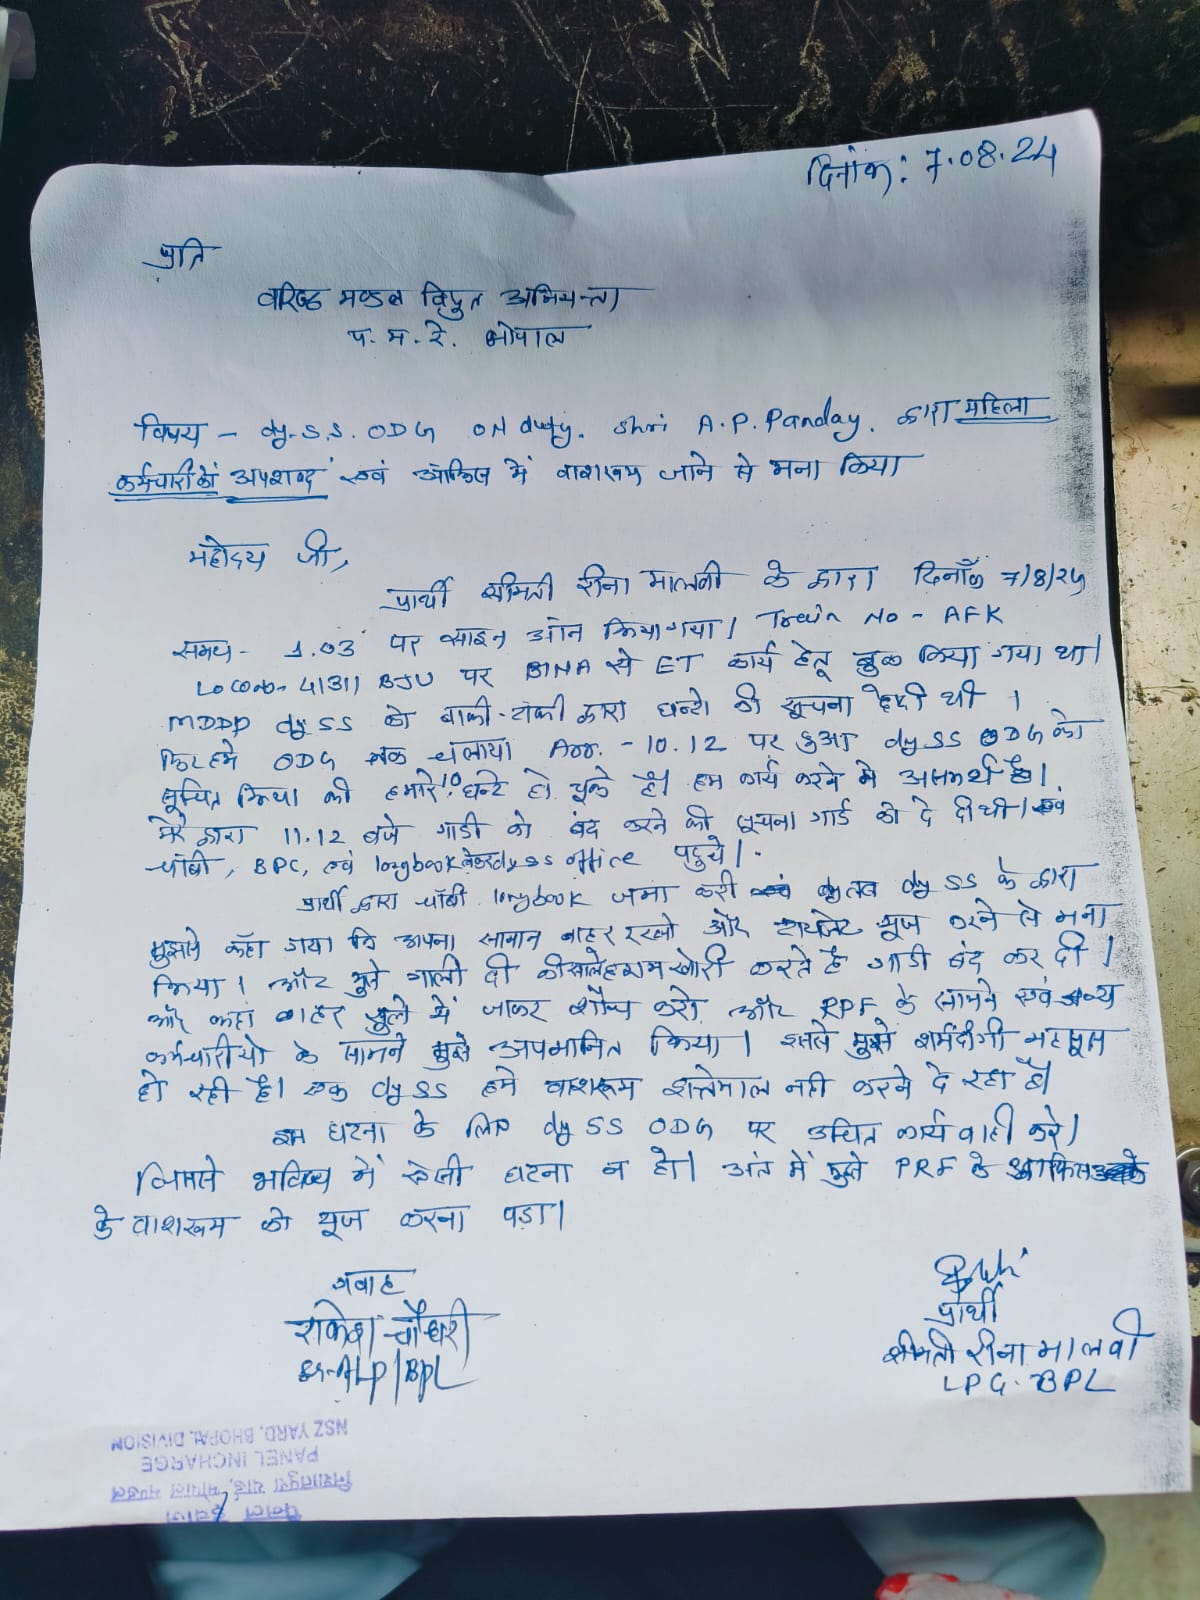 दिनांक: 7.08.24
प्रति
वरिष्ठ मण्डल विधुत अभियन्ता
प. म. रे. भोपाल
विषय - dy.S.S. ODG ON duty. Shri A.P. Panday. द्वारा महिला
कर्मचारी को अपशब्द एवं ऑफिस में वाशरूम जाने से मना किया
महोदय जी,
प्रार्थी श्रीमती रीना मालवी के द्वारा दिनाँक 7/8/24
समय- 1.03 पर साइन ऑन किया गया। Train No - AFK
Loco no- 41311 BJU पर BINA से ET कार्य हेतू बुक किया गया था।
MDDP dy SS को वाकी-टाकी द्वारा घन्टो की सूचना दे दी थी ।
फिर हमे ODG तक चलाया Arr. - 10.12 पर हुआ dy SS ODG को
सूचित किया की हमारे 10 घन्टे हो चुके है। हम कार्य करने मे असमर्थ है।
मेरे द्वारा 11.12 बजे गाडी को बंद करने की सूचना गार्ड को दे दी थी। एवं
चॉबी, BPC, एवं longbook लेकर dy ss office पहुचे।
प्रार्थी द्वारा चॉबी longbook जमा करी तब dy SS के द्वारा
मुझसे कहाँ गया कि अपना सामान बाहर रखो और टायलेट यूज करने से मना
किया। और मुझे गाली दी की साले हरामखोरी करते है गाडी बंद कर दी।
और कहाँ बाहर खुले में जाकर शौच करो और RPF के सामने एवं अन्य
कर्मचारीयो के सामने मुझे अपमानित किया। इससे मुझे शर्मदीगी महसूस
हो रही है। एक dy SS हमे वाशरूम इस्तेमाल नही करने दे रहा है।
इस घटना के लिए dy SS ODG पर उचित कार्यवाही करे।
जिससे भविष्य में ऐसी घटना न हो। अंत में मुझे PRF के आफिस
के वाशरूम को यूज करना पड़ा।
गवाह
राकेश चौधरी
Sr-ALP/BPL
प्रार्थी
श्रीमती रीना मालवी
LPG. BPL
पैनल इंचार्ज
निशातपुरा यार्ड, भोपाल मण्डल
PANEL INCHARGE
NSZ YARD, BHOPAL DIVISION